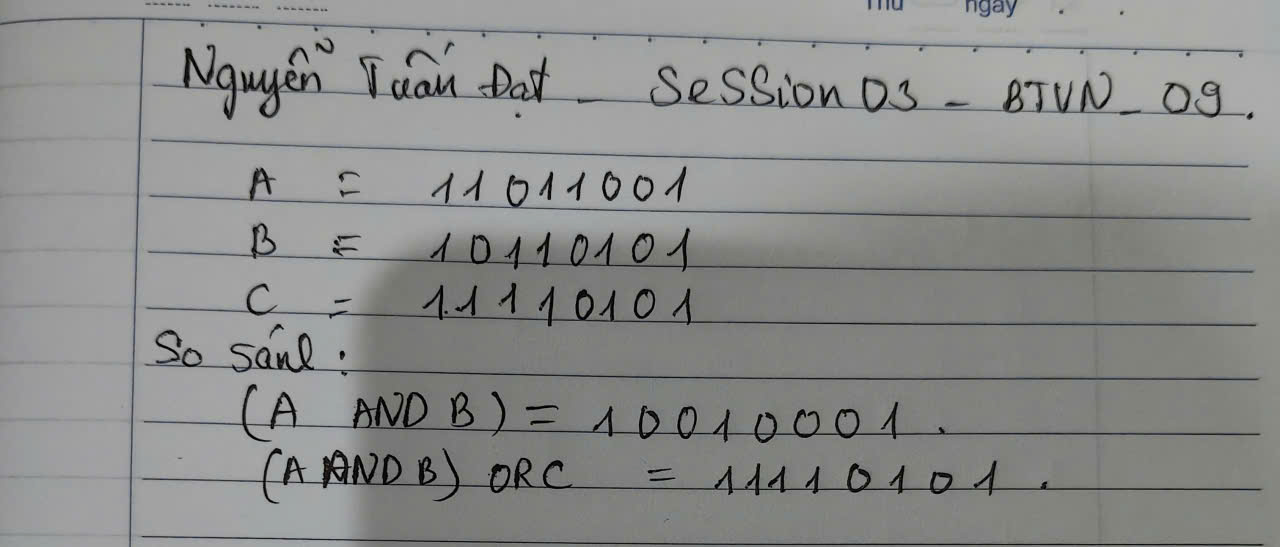 Thứ ngày
Nguyễn Tuấn Đạt - Session 03 - BTVN_09.
A = 11011001
B = 10110101
C = 11110101
So sánh:
(A AND B) = 10010001.
(A AND B) OR C = 11110101.